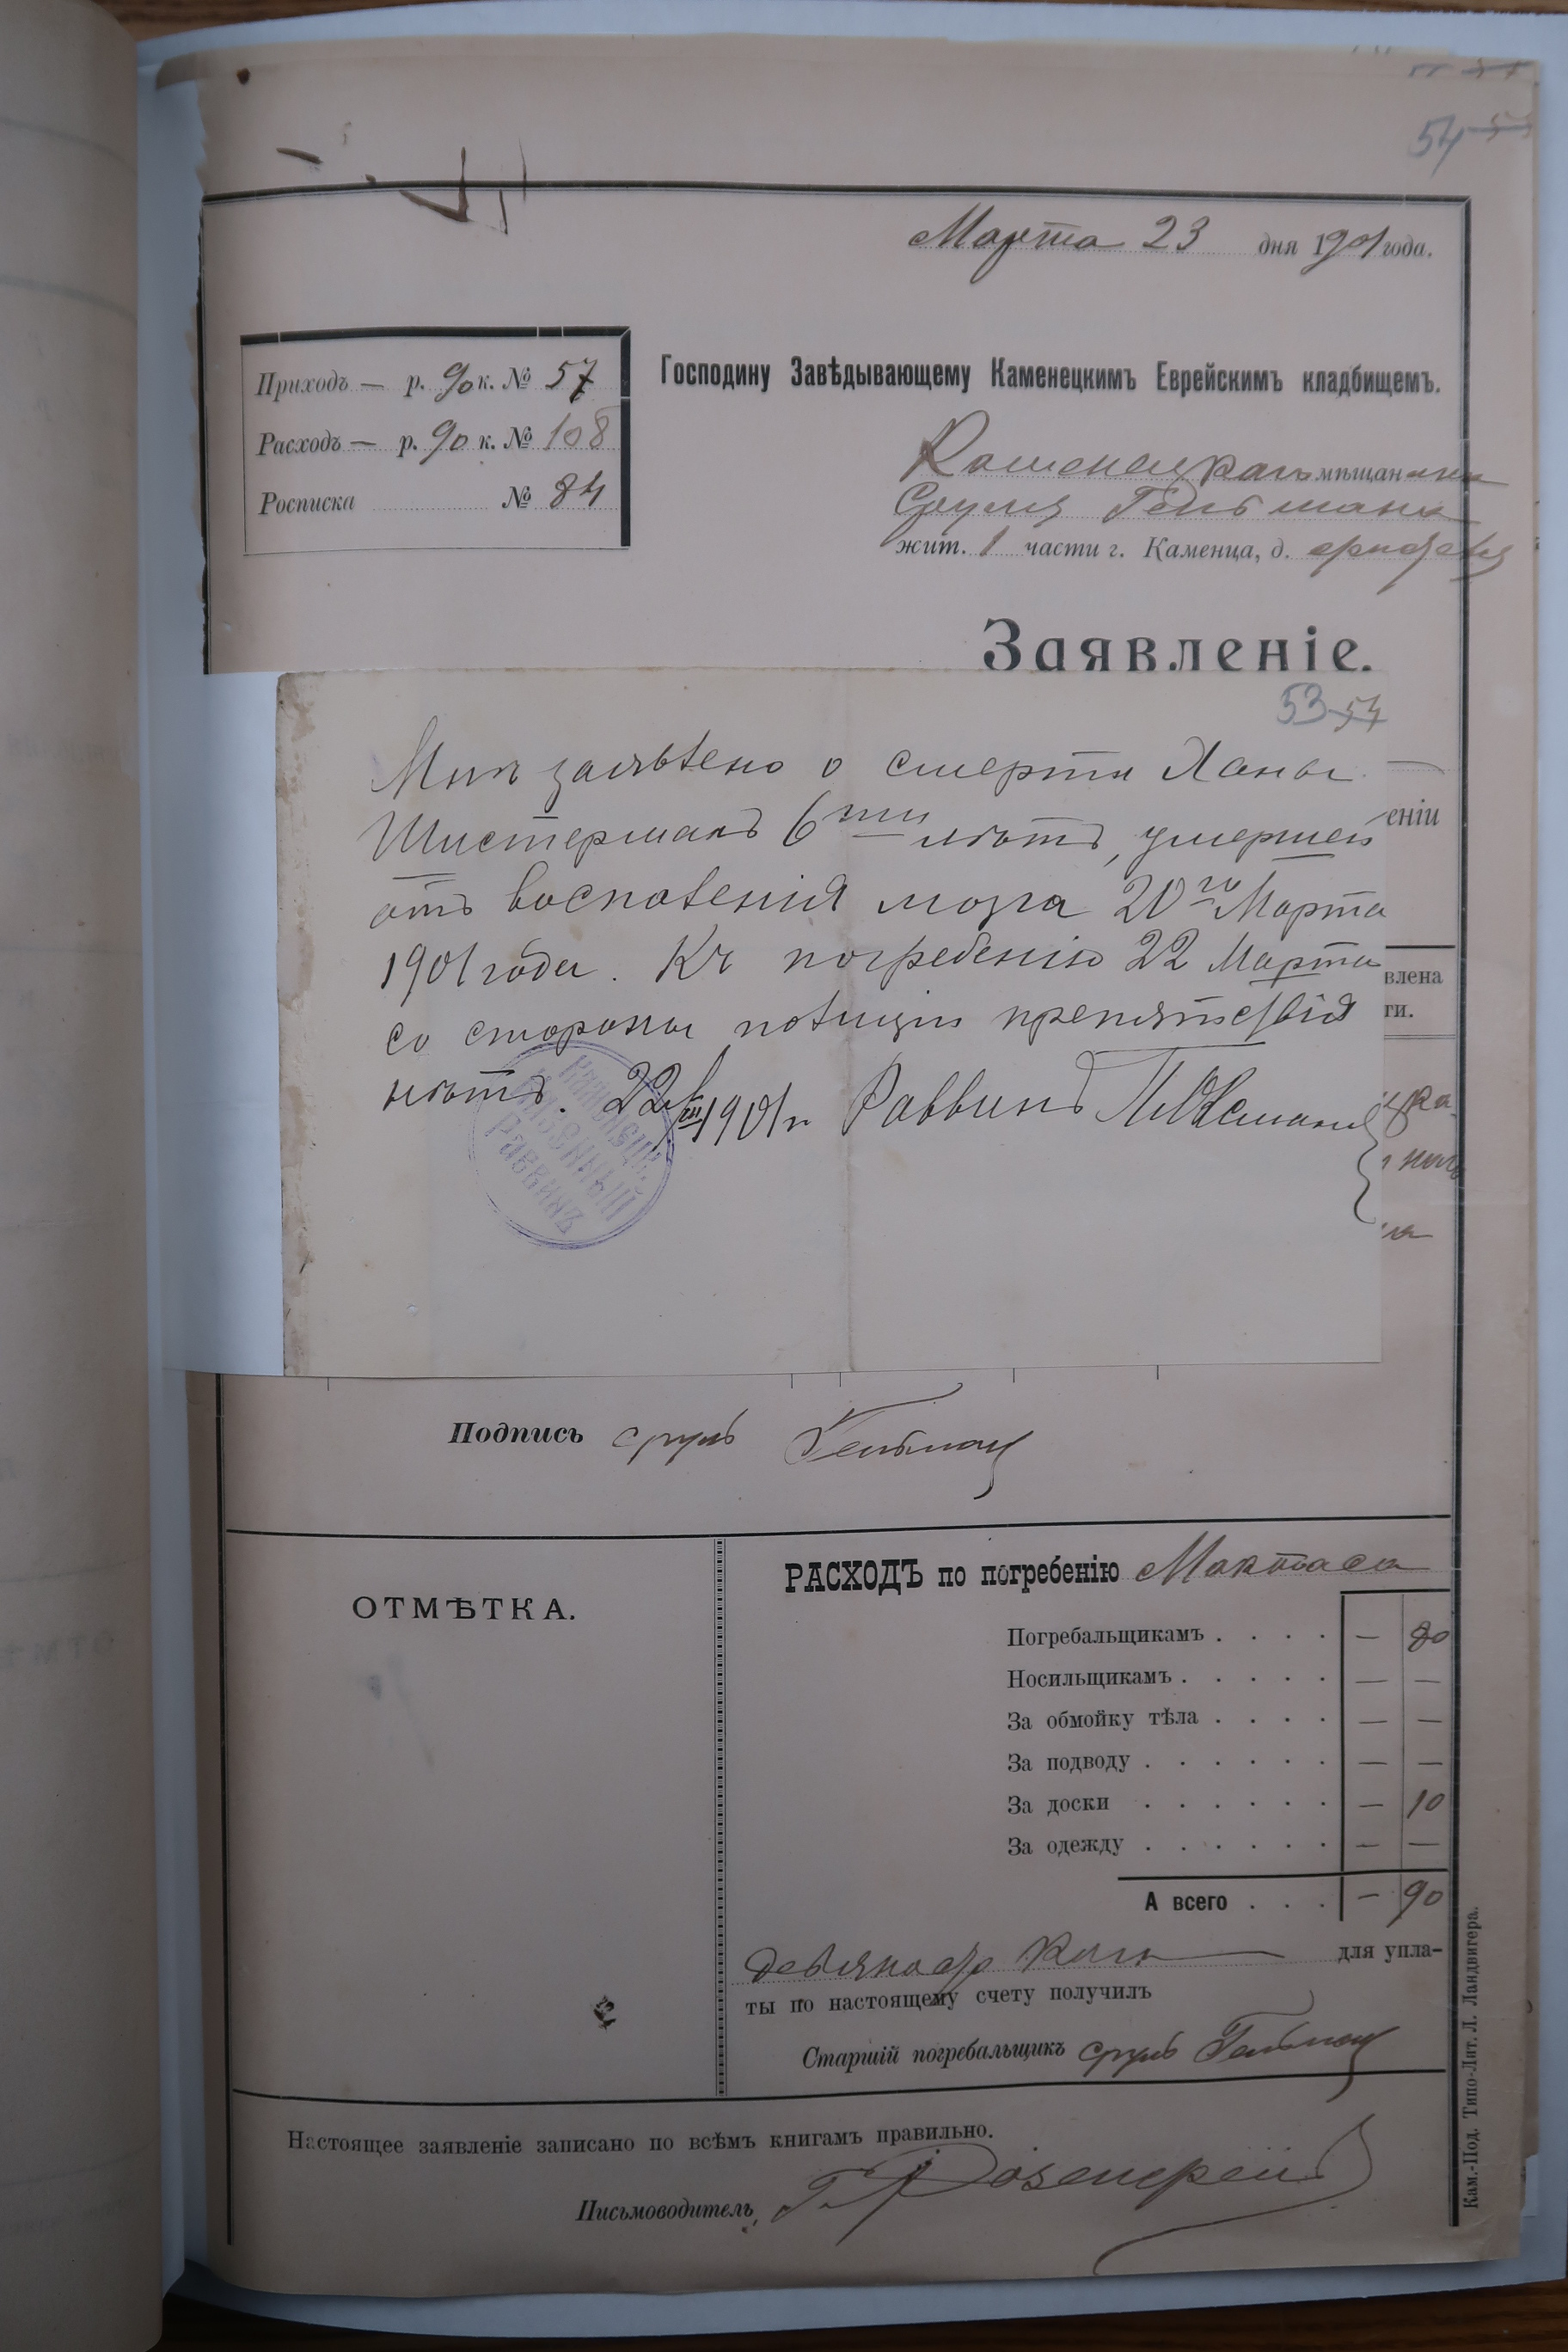 54
Марта 23 дня 1901 года.
Приходъ — р. 90 к. № 57
Расходъ — р. 90 к. № 108
Росписка № 84
Господину Завѣдывающему Каменецкимъ Еврейскимъ кладбищемъ.
Каменецкаго мѣщанина
Сруля Гельмана
жит. 1 части г. Каменца, д.
Заявленіе.
53 54
Мнѣ заявлено о смерти Ханы
Шистерманъ 6ти лѣтъ, умершей
отъ воспаленія мозга 20го Марта
1901 года. Къ погребенію 22 Марта
со стороны полиціи препятствія
нѣтъ. 22/III 1901 г. Раввинъ
Каменецк.
Казенный
Раввинъ
еніи
влена
ти.
Подпись Сруль Гельман
ОТМѢТКА.
РАСХОДЪ по погребенію
Погребальщикамъ . . . . — 80
Носильщикамъ . . . . . — —
За обмойку тѣла . . . . — —
За подводу . . . . . . — —
За доски . . . . . . — 10
За одежду . . . . . . — —
А всего . . . — 90
девяносто коп для упла-
ты по настоящему счету получилъ
Старшій погребальщикъ Сруль Гельман
Настоящее заявленіе записано по всѣмъ книгамъ правильно.
Письмоводитель,
Кам.-Под. Типо-Лит. Л. Ландвигера.